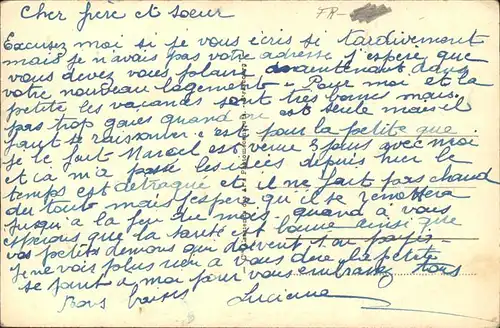 Cher frère et soeur FR-
Excusez moi si je vous écris si tardivement
mais je n'avais pas votre adresse j'espère que
vous devez vous plaire maintenant dans
votre nouveau logement. Pour moi et la
petite les vacances sont très bonnes mais
pas trop gaies quand on est seule mais il
faut se raisonner c'est pour la petite que
je le fait Marcel est venue 3 jours avec moi
et ca m'a passé les idées depuis hier le
temps est détraqué et il ne fait pas chaud
du tout mais j'espère qu'il se remettera
jusqu'a la fin du mois. quand à vous
espérons que la santé est bonne ainsi que
vos petits démons qui doivent
je ne vois plus rien a vous dire la petite
se joint a moi pour vous embrasser tous
Bons baisers Lucienne